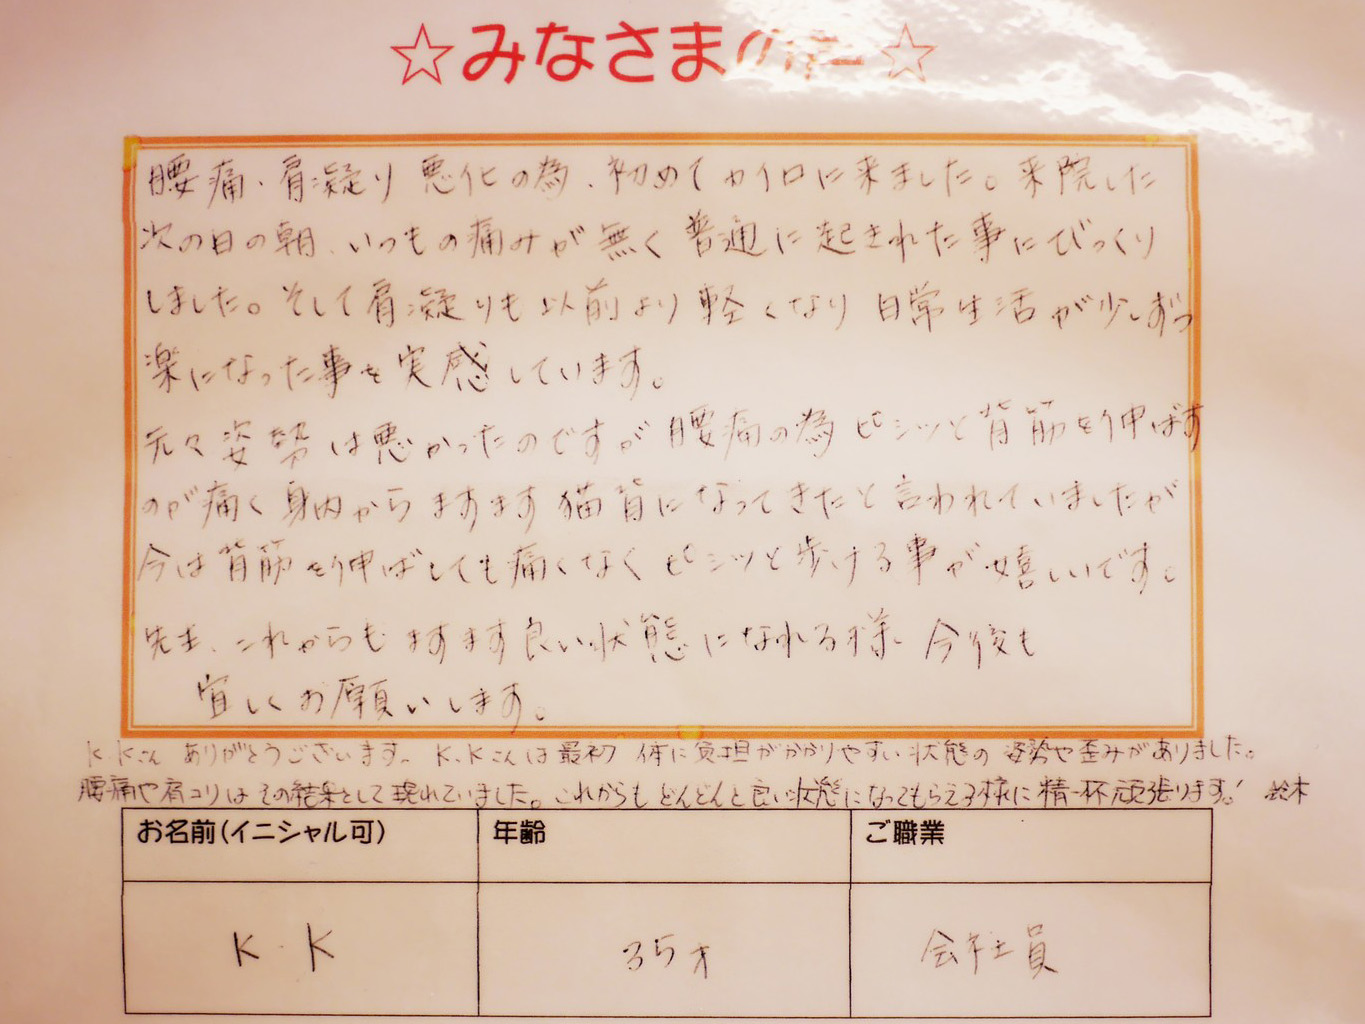 ☆みなさまの声☆
腰痛、肩凝り悪化の為、初めてカイロに来ました。来院した
次の日の朝、いつもの痛みが無く普通に起きれた事にびっくり
しました。そして肩凝りも以前より軽くなり日常生活が少しずつ
楽になった事を実感しています。
元々姿勢は悪かったのですが腰痛の為ピシッと背筋を伸ばす
のが痛く身内からますます猫背になってきたと言われていましたが
今は背筋を伸ばしても痛くなくピシッと歩ける事が嬉しいです。
先生、これからもますます良い状態になれる様、今後も
宜しくお願いします。
K.Kさん ありがとうございます。K.Kさんは最初 体に負担がかかりやすい状態の 姿勢や歪みがありました。
腰痛や肩コリは その結果として現れていました。これからも どんどんと良い状態になってもらえる様に 精一杯頑張ります! 鈴木
お名前(イニシャル可) 年齢 ご職業
K.K 35才 会社員